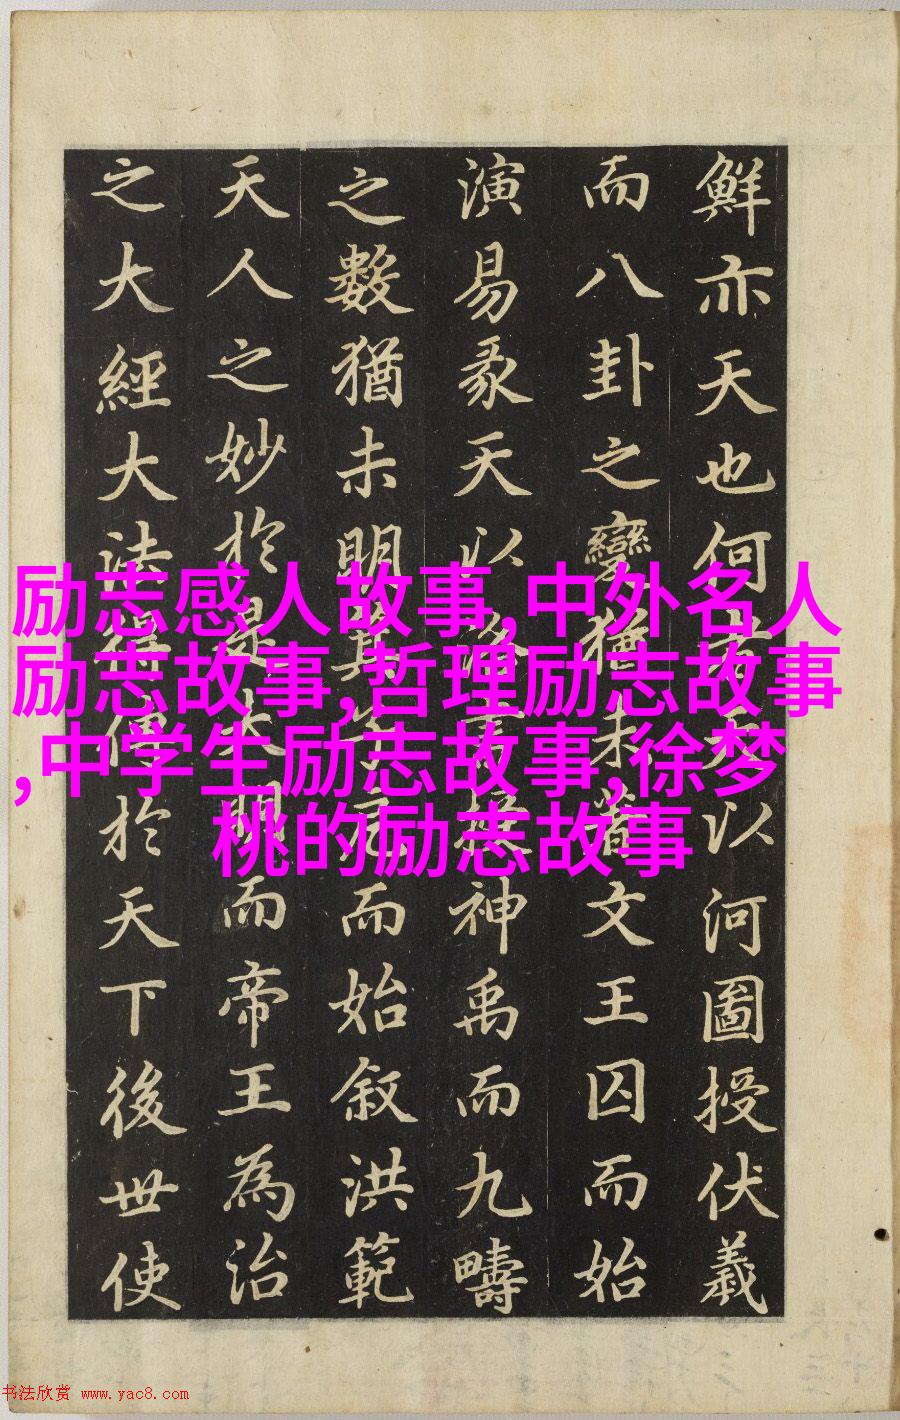 鮮亦天也何天以河圖授伏羲
而八卦之變猶未著文王囚而始
演易彖天以洛書授神禹而九疇
之數猶未明箕而始叙洪範
天人之妙於是大明而帝王為治
之大經大法得傳於天下後世使
励志感人故事,中外名人
励志故事,哲理励志故事
,中学生励志故事,徐梦
桃的励志故事
书法欣赏 www.yac8.com